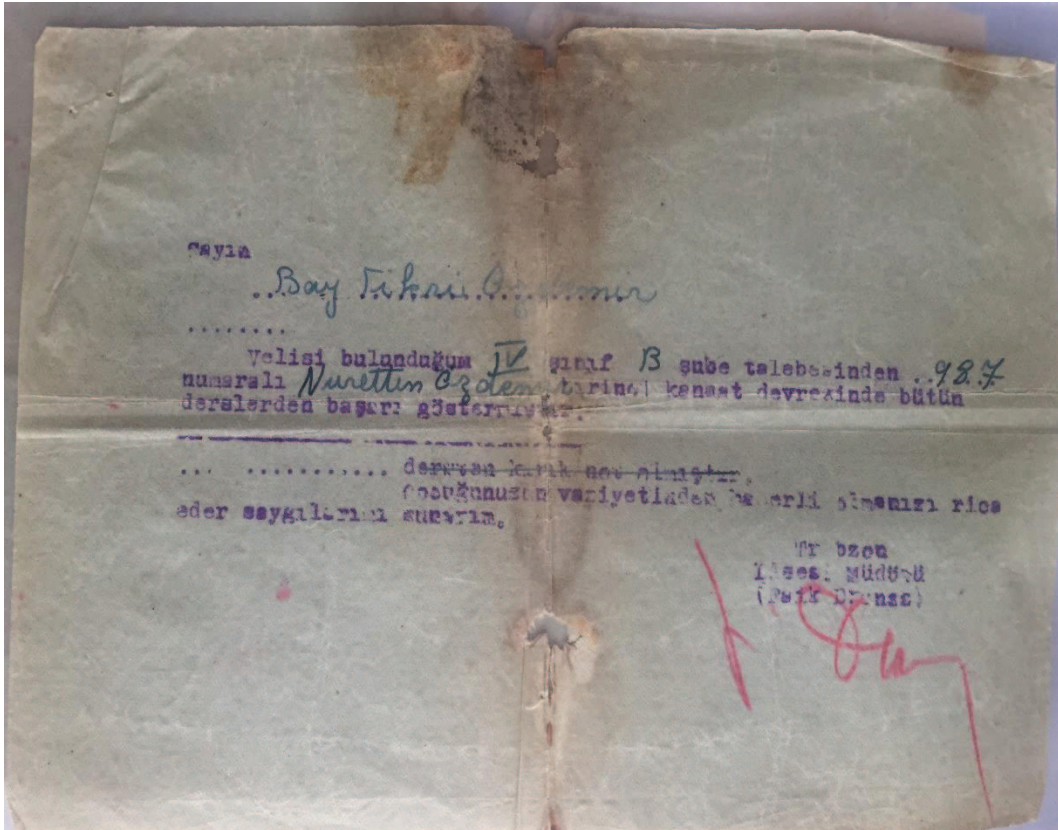 Sayın
Bay Fikri Özdemir
........
Velisi bulunduğum IV sınıf B şube talebesinden ..987
numaralı Nurettin Özdemir birinci kanaat devresinde bütün
derslerden başarı göstermiştir.
... ........... dersten kırık not almıştır.
Çocuğunuzun vaziyetinden haberli olmanızı rica
eder saygılarımı sunarım.
Trabzon
Lisesi Müdürü
(Faik